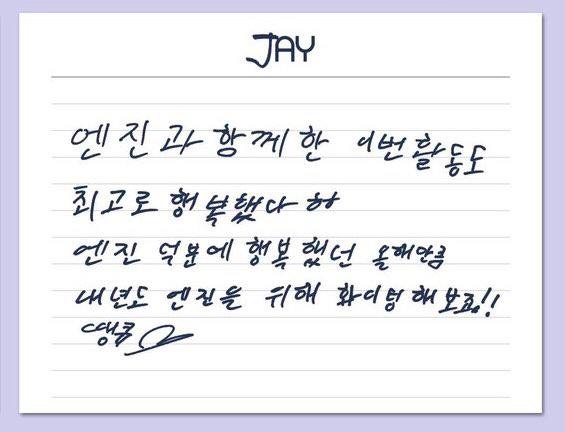 JAY
엔진과 함께한 이번 활동도
최고로 행복했다 ㅎㅎ
엔진 덕분에 행복했던 올해만큼
내년도 엔진을 위해 화이팅 해보죠!!
땡큐